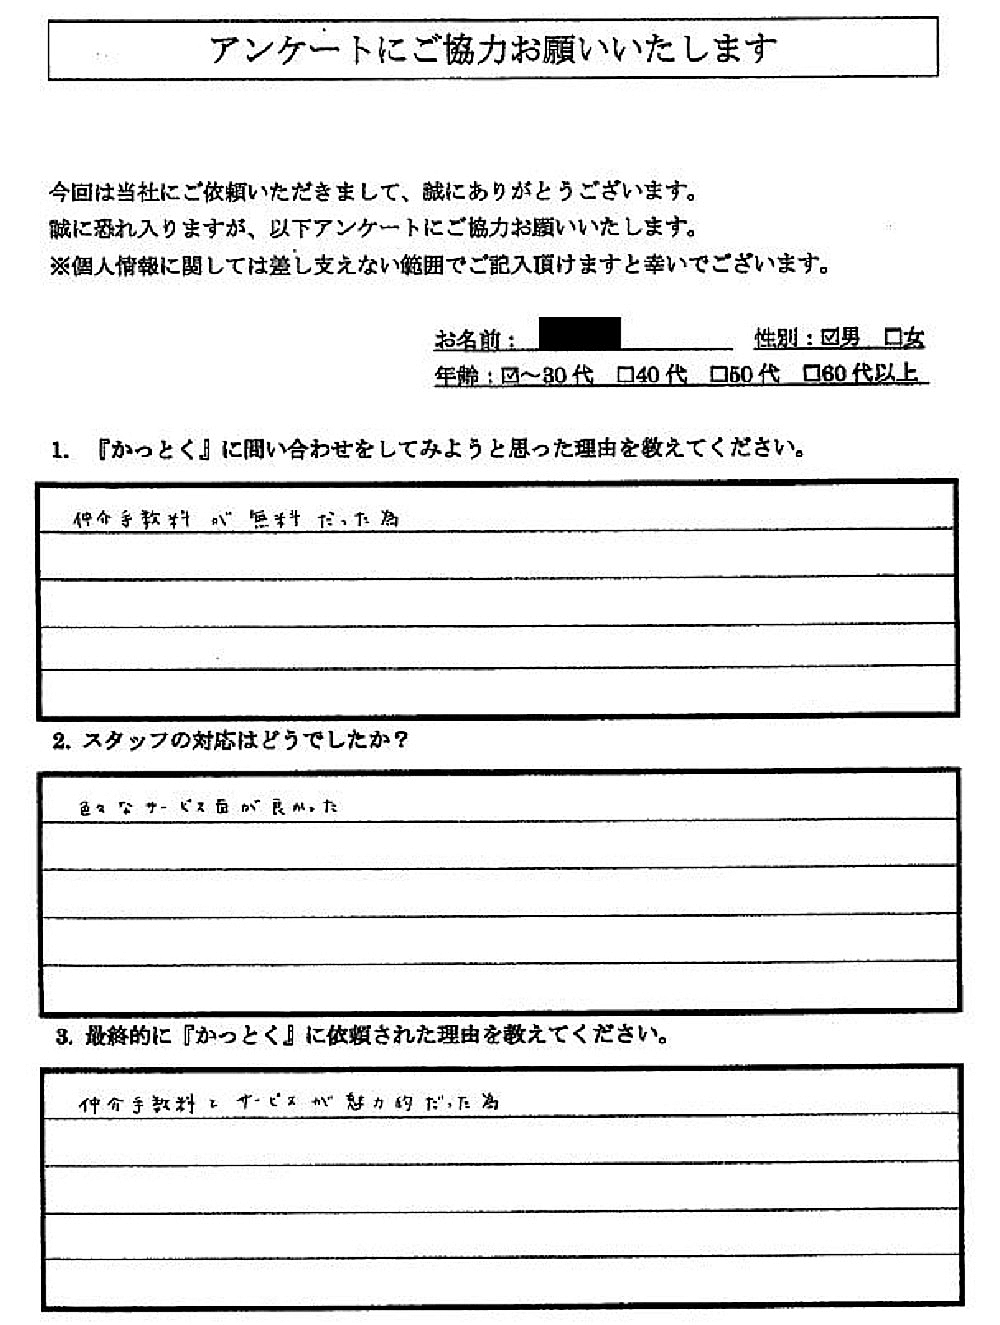 アンケートにご協力お願いいたします
今回は当社にご依頼いただきまして、誠にありがとうございます。
誠に恐れ入りますが、以下アンケートにご協力お願いいたします。
※個人情報に関しては差し支えない範囲でご記入頂けますと幸いでございます。
お名前： 性別：☑男 □女
年齢：☑～30代 □40代 □50代 □60代以上
1. 『かっとく』に問い合わせをしてみようと思った理由を教えてください。
仲介手数料が無料だった為
2. スタッフの対応はどうでしたか？
色々なサービス面が良かった
3. 最終的に『かっとく』に依頼された理由を教えてください。
仲介手数料とサービスが魅力的だった為